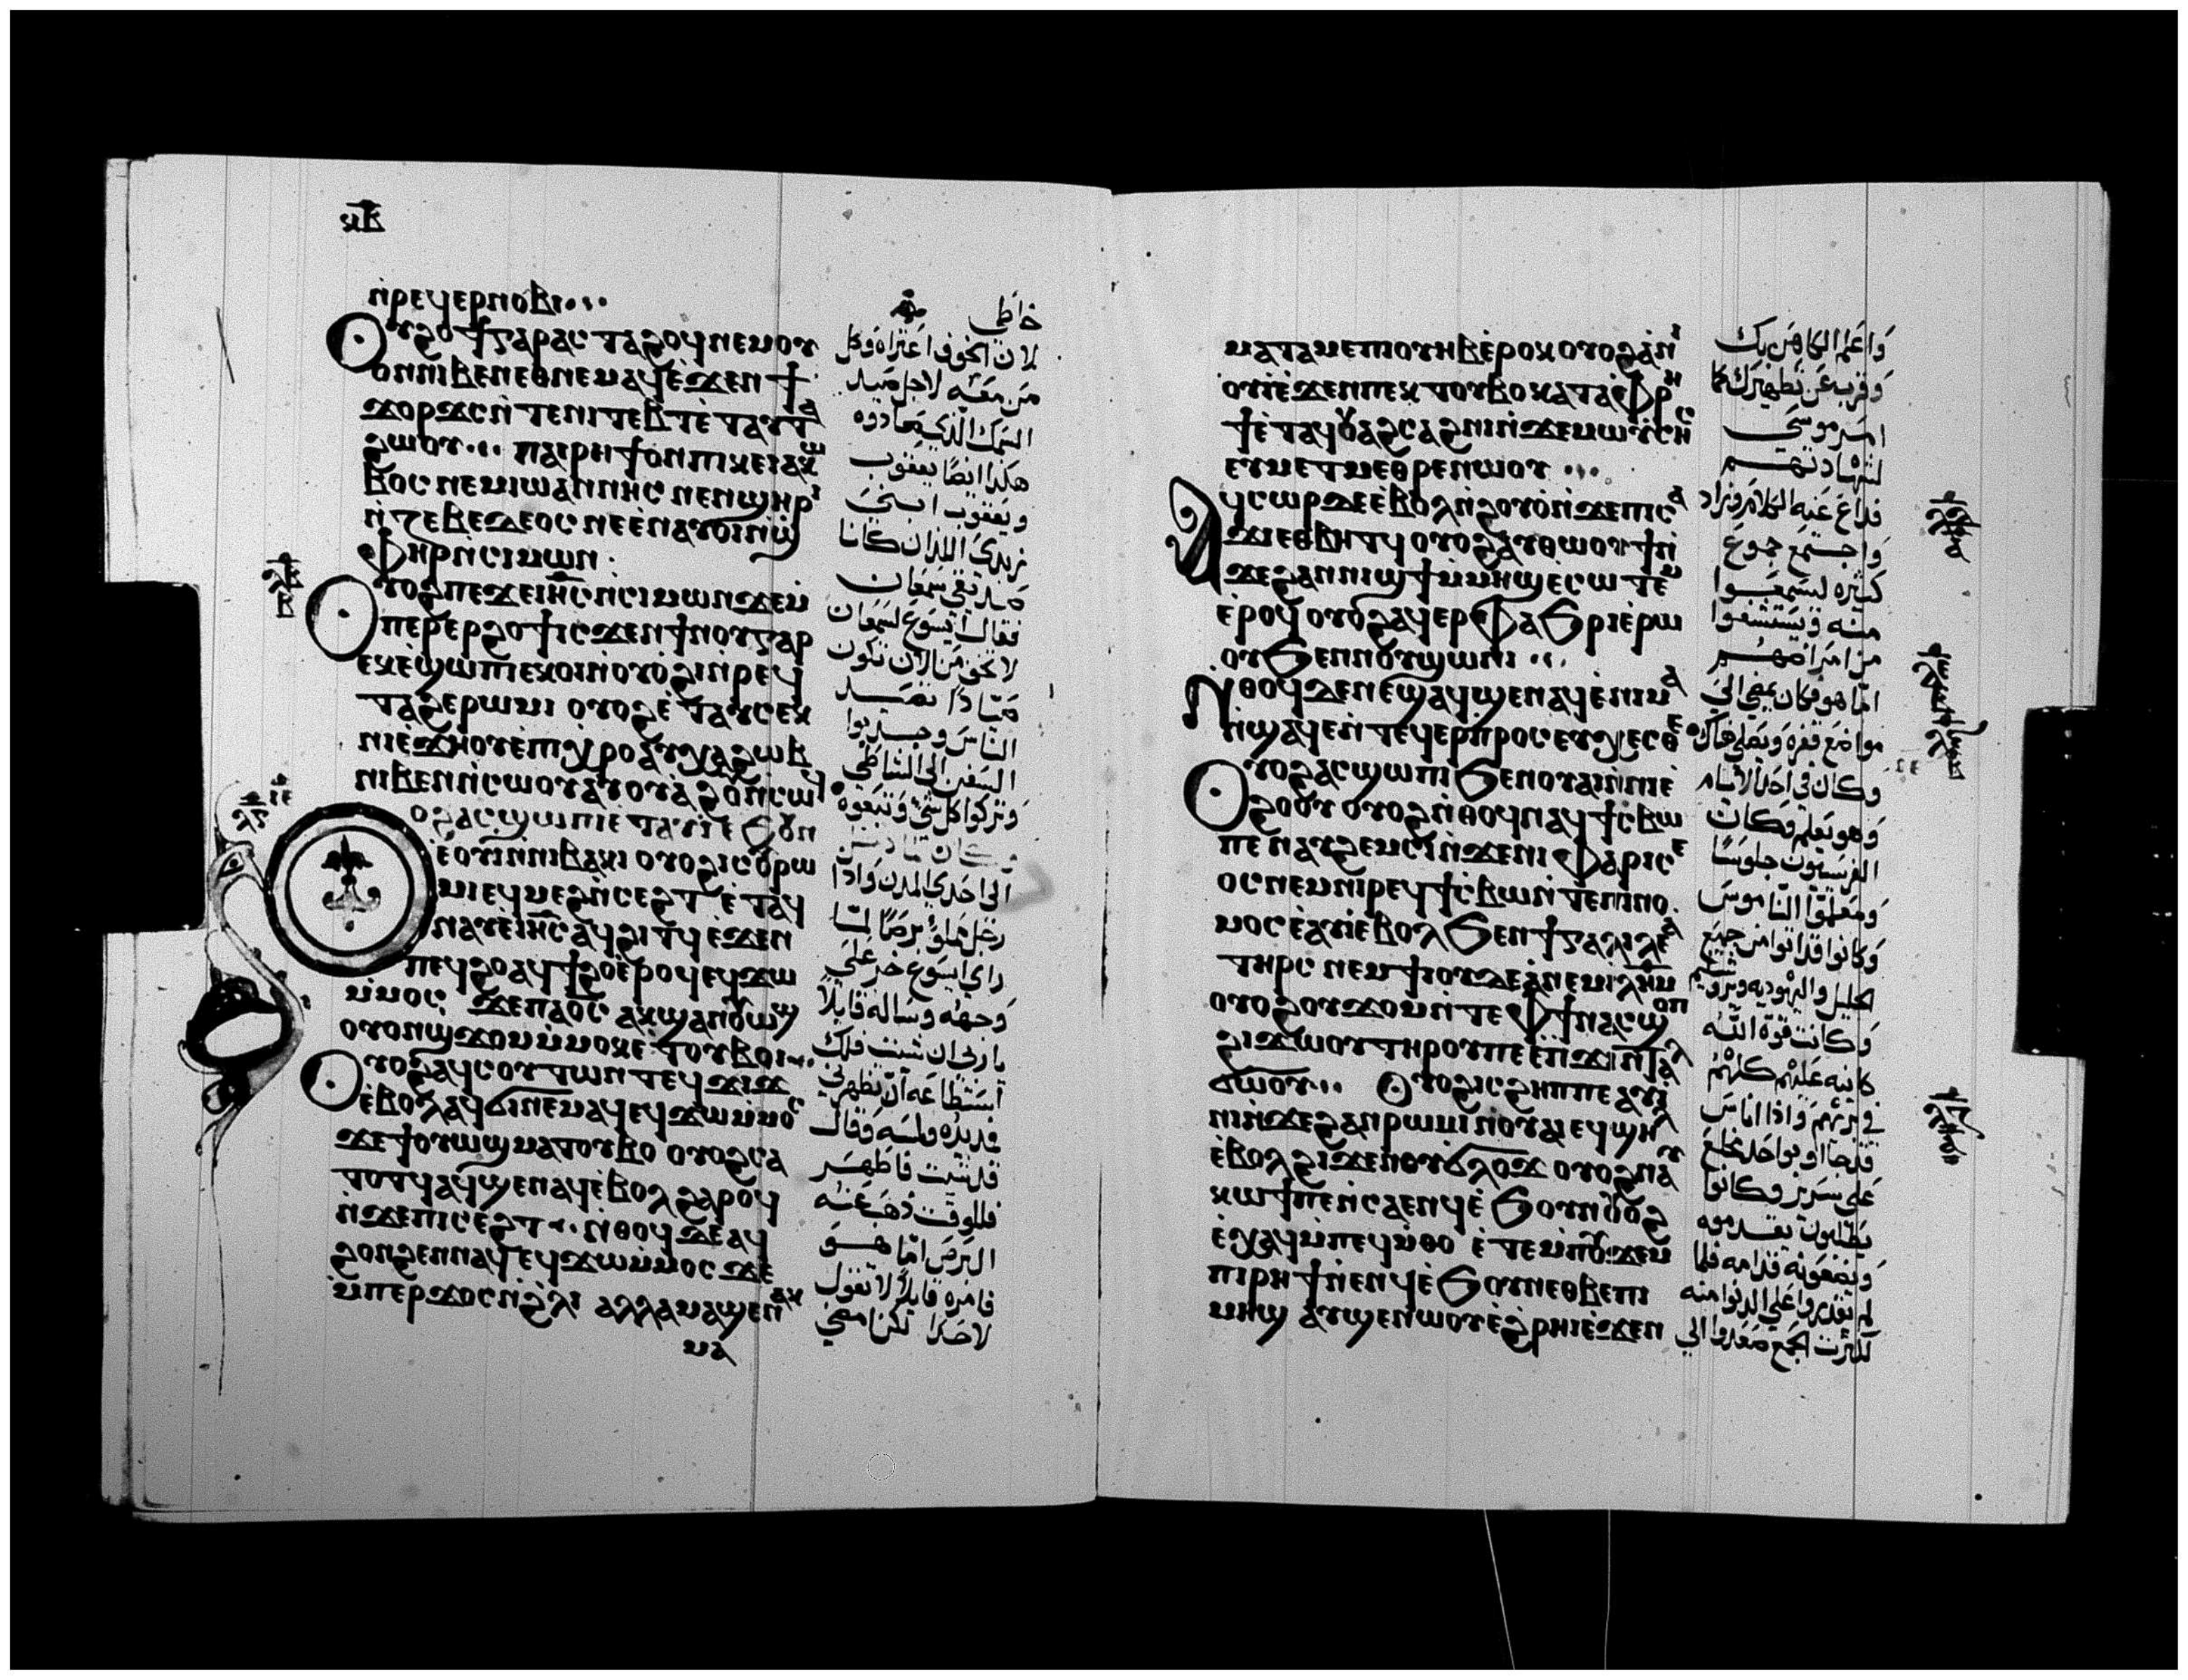 ⲕⲃ
ⲛ̀ⲣⲉϥⲉⲣⲛⲟⲃⲓ
ⲟⲩϩⲟϯⲅⲁⲣⲁⲥ ⲧⲁϩⲟϥⲛⲉⲙⲟⲩ
ⲟⲛⲛⲓⲃⲉⲛⲉⲑⲛⲉⲙⲁϥⲉ̀ϫⲉⲛ ϯ
ϫⲟⲣϫⲥⲛ̀ⲧⲉⲛⲓⲧⲉⲃⲧⲉ̀ⲧⲁⲩⲧⲁ
ϩⲱⲟⲩ ⲡⲁⲓⲣⲏϯⲟⲛⲡⲓⲕⲉⲓⲁⲕⲱ
ⲃⲟⲥ ⲛⲉⲙⲓⲱⲁⲛⲛⲏⲥ ⲛⲉⲛϣⲏⲣⲓ
ⲛ̀ⲍⲉⲃⲉⲇⲉⲟⲥ ⲛⲉⲉ̀ⲛⲁⲩⲟⲓⲛ̀ϣ
ⲫⲏⲣⲛ̀ⲥⲓⲙⲱⲛ
ⲟⲩⲟϩⲡⲉϫⲉⲓⲏⲥⲛ̀ⲥⲓⲙⲱⲛϫⲉⲙ̀
ⲡⲉⲣⲉⲣϩⲟϯⲓⲥϫⲉⲛ ϯⲛⲟⲩⲅⲁⲣ
ⲉⲕⲉ̀ϣⲱⲡⲓⲉⲕⲟⲓⲛ̀ⲟⲩⲟ̀ϩⲓⲛ̀ⲣⲉϥ
ⲧⲁϩⲉⲣⲱⲙⲓ ⲟⲩⲟϩⲉ̀ⲧⲁⲩⲥⲉⲕ
ⲛⲓⲉ̀ϫⲏⲟⲩⲉ̀ⲡⲓⲭⲣⲟⲁⲩⲭⲁϩⲱⲃ
ⲛⲓⲃⲉⲛⲛ̀ⲥⲱⲟⲩⲁⲩⲟⲩⲁϩⲟⲩⲛ̀ⲥⲱϥ
ⲟⲩⲟϩⲁⲥϣⲱⲡⲓⲉⲧⲁϥⲓ̀ⲉϧⲟⲩⲛ
ⲉ̀ⲟⲩⲓ̀ⲛ̀ⲛⲓⲃⲁⲕⲓ ⲟⲩⲟϩⲓⲥⲟⲩⲣⲱ
ⲙⲓⲉϥⲙⲉϩⲛ̀ⲥⲉϩⲧ ⲉ̀ⲧⲁϥ
ⲛⲁⲩⲉ̀ⲓⲏⲥⲁϥϩⲓⲧϥ ⲉϫⲉⲛ
ⲡⲉϥϩⲟⲁϥϯϩⲟⲉ̀ⲣⲟϥⲉϥϫⲱ
ⲙ̀ⲙⲟⲥ ϫⲉⲡⲁⲟ̅ⲥ̅ ⲁⲕϣⲁⲛⲟⲩⲱϣ
ⲟⲩⲟⲛϣϫⲟⲙⲙ̀ⲙⲟⲕⲉ̀ⲧⲟⲩⲃⲟⲓ
ⲟⲩⲟϩⲁϥⲥⲟⲩⲧⲱⲛⲧⲉϥϫⲓϫ
ⲉ̀ⲃⲟⲗⲁϥϭⲓⲛⲉⲙⲁϥⲉϥϫⲱⲙ̀ⲙⲟⲥ
ϫⲉϯⲟⲩⲱϣⲙⲁⲧⲟⲩⲃⲟ ⲟⲩⲟϩⲥⲁ
ⲧⲟⲧϥⲁϥϣⲉⲛⲁϥⲉ̀ⲃⲟⲗϩⲁⲣⲟϥ
ⲛ̀ϫⲉⲡⲓⲥⲉϩⲧ ⲛ̀ⲑⲟϥⲇⲉⲁϥ
ϩⲟⲛϩⲉⲛⲛⲁϥⲉϥϫⲱⲙ̀ⲙⲟⲥ ϫⲉ
ⲙ̀ⲡⲉⲣϫⲟⲥⲛ̀ϩⲗⲓ ⲁⲗⲗⲁⲙⲁϣⲉⲛⲁⲕ
ⲙⲁ
خاطى
لان الخوف اعتراه وكل
من معه لاجل صيد
السمك الذي صادوه
هكذا ايضًا يعقوب
ويعقوب ابني
زبدى اللذان كانا
صديقي سمعان
فقال ايسوع لسمعان
لا تخف من الان تكون
صيادًا تصيد
الناس وجذبوا
السفن الى الشاطي
وتركوا كل شي وتبعوه
وكان لما دخل
الى احدي المدن واذا
رجل مملؤ برصًا لما
راي ايسوع خر على
وجهه وساله قايلاً
يا رب ان شيت فلك
استطاعه ان تطهرني
فمد يده ولمسه وقال
قد شيت فاطهر
فللوقت ذهب عنه
البرص اما هو
فامره قايلاً لا تقول
لاحد لكن امضي
ⲙⲁⲧⲁⲙⲉⲡⲓⲟⲩⲏⲃⲉ̀ⲣⲟⲕⲟⲩⲟϩⲁ̀ⲛⲓ
ⲟⲩⲓ̀ⲉ̀ϫⲉⲛⲡⲉⲕ ⲧⲟⲩⲃⲟⲕⲁⲧⲁⲫⲣⲏ
ϯⲉ̀ⲧⲁϥⲟⲩⲁϩⲥⲁϩⲛⲓⲛ̀ϫⲉⲙⲱⲩⲥⲏⲥ
ⲉⲩⲙⲉⲧⲙⲉⲑⲣⲉⲛⲱⲟⲩ
ⲁϥⲥⲱⲣⲇⲉⲉ̀ⲃⲟⲗⲛ̀ϩⲟⲩⲟ̀ⲛ̀ϫⲉⲡⲓⲥⲁ
ϫⲓⲉⲑⲃⲏⲧϥ ⲟⲩⲟϩⲁⲩⲑⲱⲟⲩϯⲛ̀
ϫⲉϩⲁⲛⲛⲓϣϯⲙ̀ⲙⲏϣⲉ̀ⲥⲱⲧⲉⲙ
ⲉ̀ⲣⲟϥ ⲟⲩⲟϩⲁϥⲉⲣⲫⲁϧⲣⲓⲉ̀ⲣⲱ
ⲟⲩϧⲉⲛⲛⲟⲩϣⲱⲛⲓ
ⲛ̀ⲑⲟϥⲇⲉⲛⲉϣⲁϥϣⲉⲛⲁϥⲉ̀ⲛⲓⲙⲁ
ⲛ̀ϣⲁϥⲉⲛ̀ⲧⲉϥⲉⲣⲡⲣⲟⲥⲉⲩⲭⲉⲥⲑⲉ
ⲟⲩⲟϩⲁⲥϣⲱⲡⲓϧⲉⲛⲟⲩⲁⲓⲛ̀ⲛⲓⲉ̀
ϩⲟⲟⲩ ⲟⲩⲟϩⲛ̀ⲑⲟϥⲛⲁϥϯⲥⲃⲱ
ⲡⲉ ⲛⲁⲩϩⲉⲙⲥⲓⲛ̀ϫⲉⲛⲓⲫⲁⲣⲓⲥⲉ
ⲟⲥⲛⲉⲙⲛⲓⲣⲉϥϯⲥⲃⲱⲛ̀ⲧⲉⲡⲓⲛⲟ
ⲙⲟⲥⲉ̀ⲁⲩⲓ̀ⲉ̀ⲃⲟⲗϧⲉⲛϯⲅⲁⲗⲓⲗⲉⲁ
ⲧⲏⲣⲥ ⲛⲉⲙϯⲓⲟⲩⲇⲉⲁⲛⲉⲙⲓⲗⲏⲙ
ⲟⲩⲟϩⲟⲩϫⲟⲙⲛ̀ⲧⲉⲫϯⲛⲁⲥϣⲟⲡ
ϩⲓϫⲱⲟⲩⲧⲏⲣⲟⲩⲡⲉⲉ̀ⲡϫⲓⲛⲧⲁⲗ
ϭⲱⲟⲩ ⲟⲩⲟϩⲓⲥϩⲏⲡⲡⲉⲁⲩⲓ̀
ⲛⲓⲛ̀ϫⲉϩⲁⲛⲣⲱⲙⲓⲛ̀ⲟⲩⲁⲓⲉϥϣⲏⲗ
ⲉ̀ⲃⲟⲗϩⲓϫⲉⲛⲟⲩϭⲗⲟϫ ⲟⲩⲟϩⲛⲁⲩ
ⲕⲱϯⲡⲉⲛ̀ⲥⲁⲉⲛϥⲉ̀ϧⲟⲩⲛ ⲟⲩⲟϩ
ⲉ̀ⲭⲁϥⲙ̀ⲡⲉϥⲙ̀ⲑⲟ ⲉ̀ⲧⲉⲙ̀ⲡⲟⲩϫⲉⲙ
ⲡⲓⲣⲏϯⲛ̀ⲉⲛϥⲉ̀ϧⲟⲩⲛⲉⲑⲃⲉⲡⲓ
ⲙⲏϣ ⲁⲩϣⲉⲛⲱⲟⲩⲉ̀ϩ̀ⲣⲏⲓⲉ̀ϫⲉⲛ
واعلم الكاهن بك
وقرب عن تطهيرك كما
امر موسى
لشهادتهم
فذاع عنه الكلام وزاد
واجتمع جموع
كثيره ليسمعوا
منه ويستشفوا
من امراضهم
اما هو فكان يمضي الى
مواضع قفره ويصلي هناك
وكان في احد الايام
وهو يعلم وكان
الفريسيون جلوسًا
ومعلموا الناموس
وكانوا قد اتوا من جميع
الجليل واليهوديه ويروشليم
وكانت قوة الله
كاينه عليهم كلهم
في بريهم واذا اناس
قد جااوا بواحد مخلع
على سرير وكانوا
يطلبون يقدموه
ويضعونه قدامه فلما
لم يقدروا على الدنوا منه
لكثرت الجمع صعدوا الى